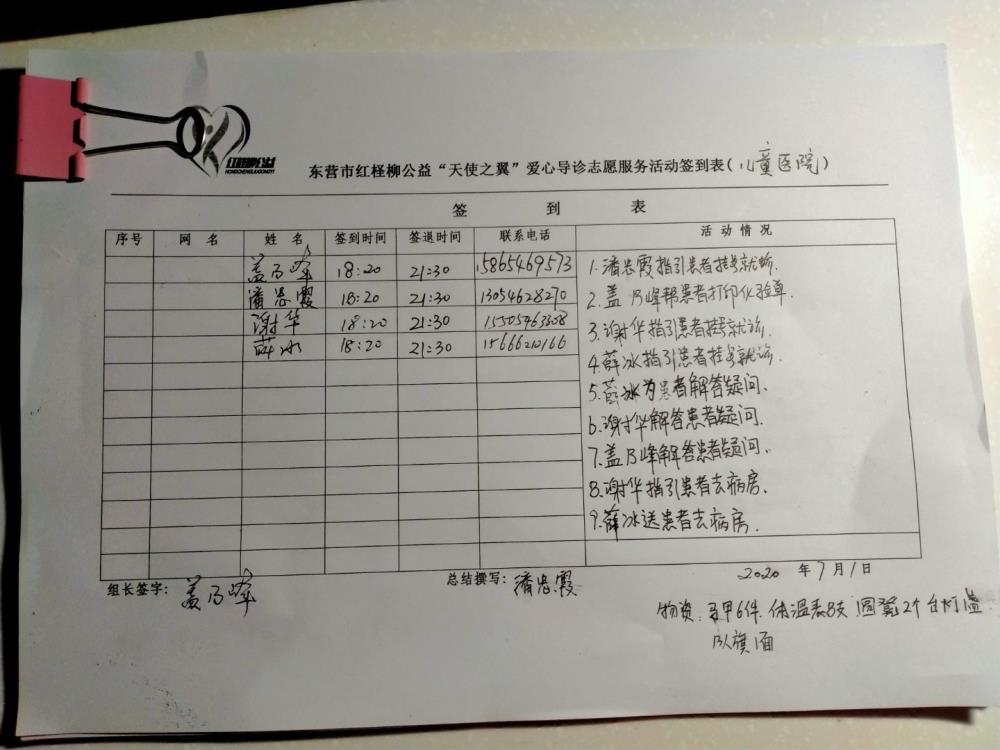 红柽柳公益
HONGCHENGLIUGONGYI
东营市红柽柳公益“天使之翼”爱心导诊志愿服务活动签到表(儿童医院)
签 到 表
序号 网 名 姓 名 签到时间 签退时间 联系电话 活 动 情 况
盖乃峰 18:20 21:30 15865469573
潘思霞 18:20 21:30 13054628270
谢华 18:20 21:30 15505463808
薛冰 18:20 21:30 15666210166
1.潘思霞指引患者挂号就诊.
2.盖乃峰帮患者打印化验单.
3.谢华指引患者挂号就诊.
4.薛冰指引患者挂号就诊.
5.薛冰为患者解答疑问.
6.谢华解答患者疑问.
7.盖乃峰解答患者疑问.
8.谢华指引患者去病房.
9.薛冰送患者去病房.
组长签字: 盖乃峰 总结撰写: 潘思霞 2020 年 7 月 1 日
物资 马甲6件 体温表8支 圆凳2个 台灯1盏
队旗1面